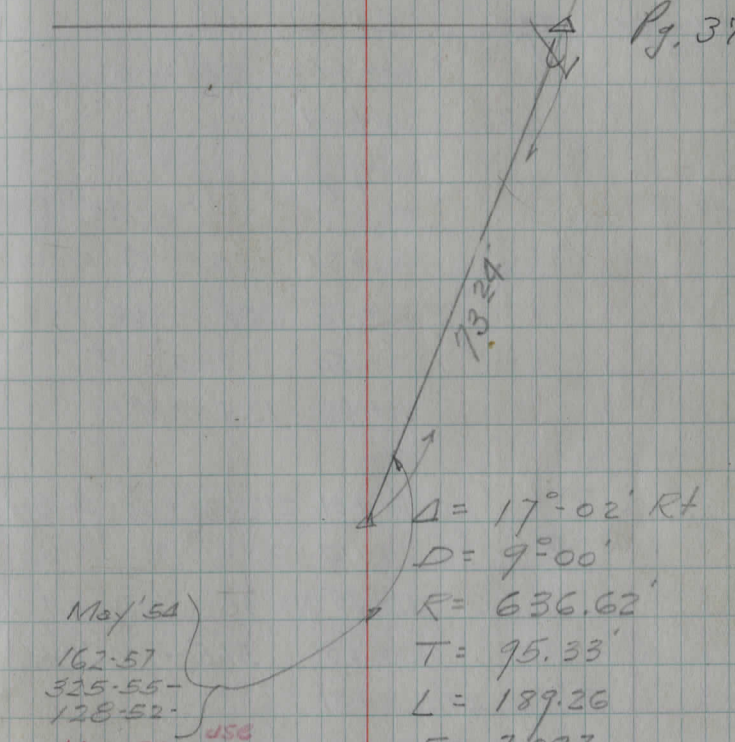 Pg. 37
73.24
Δ = 17°-02' Rt
D = 9°-00'
R = 636.62'
T = 95.33'
L = 189.26
May '54
162-57
325-55-
128-52-
use